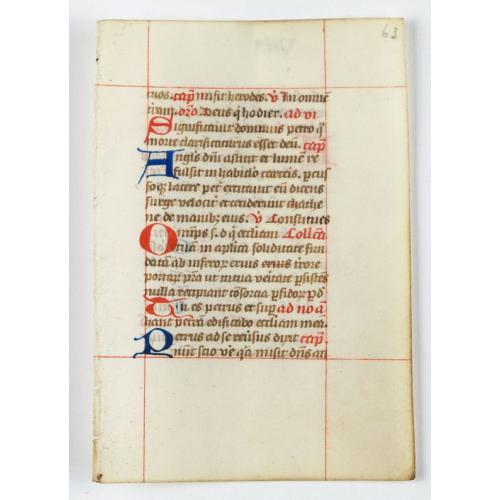 63
tuos. cap misit herodes. v In omnem
tram. oro Deus q hodier. ad vi
Significavit dominus petro q
morte clarificaturus esset deu. cap
Angls dni astitit et lumen re
fulsit in habitaclo carceris. percus
soq; latere petri excitavit eu dicens
surge velociter et ceciderunt cathe
ne de manib; eius. v Constitues
Omps s. d q eccliam Collecta
tuam in aplica soliditate fun
datam ab inferor eruis
portar pra ut in tua veritate psistes
nulla recipiant consorcia pfidor p d
Tu es petrus et sup ad no a
hanc petra edificabo eccliam mea.
Petrus ad se reversus dixit cap.
nunc scio ve qa misit dns